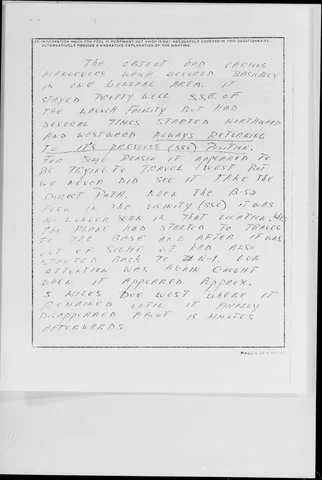 27. INFORMATION WHICH YOU FEEL IS PERTINENT BUT WHICH IS NOT ADEQUATELY COVERED IN THIS QUESTIONNAIRE.
ALTERNATIVELY PROVIDE A NARRATIVE EXPLANATION OF THE SIGHTING.
THE OBJECT HAD VARIOUS
MANEUVERS WHICH OCCURED BASICALLY
IN ONE GENERAL AREA. IT
STAYED PRETTY WELL SSE OF
THE LAUNCH FACILITY BUT HAD
SEVERAL TIMES STARTED NORTHWARD
AND WESTWARD ALWAYS RETURNING
TO IT'S PREVIOUS (SSE) POSITION.
FOR SOME REASON IT APPEARED TO
BE TRYING TO TRAVEL WEST BUT
WE NEVER DID SEE IT TAKE THE
DIRECT PATH. WHEN THE B-52
FLEW IN THE VICINITY (SSE) IT WAS
NO LONGER SEEN IN THAT LOCATION.
THE PLANE HAD STARTED TO TRAVEL
TO THE BASE AND AFTER IT WAS
OUT OF SIGHT WE HAD ALSO
STARTED BACK TO N-1. OUR
ATTENTION WAS AGAIN CAUGHT
WHEN IT APPEARED APPROX.
5 MILES DUE WEST WHERE IT
REMAINED UNTIL IT FINALLY
DISAPPEARED ABOUT 15 MINUTES
AFTERWARDS.